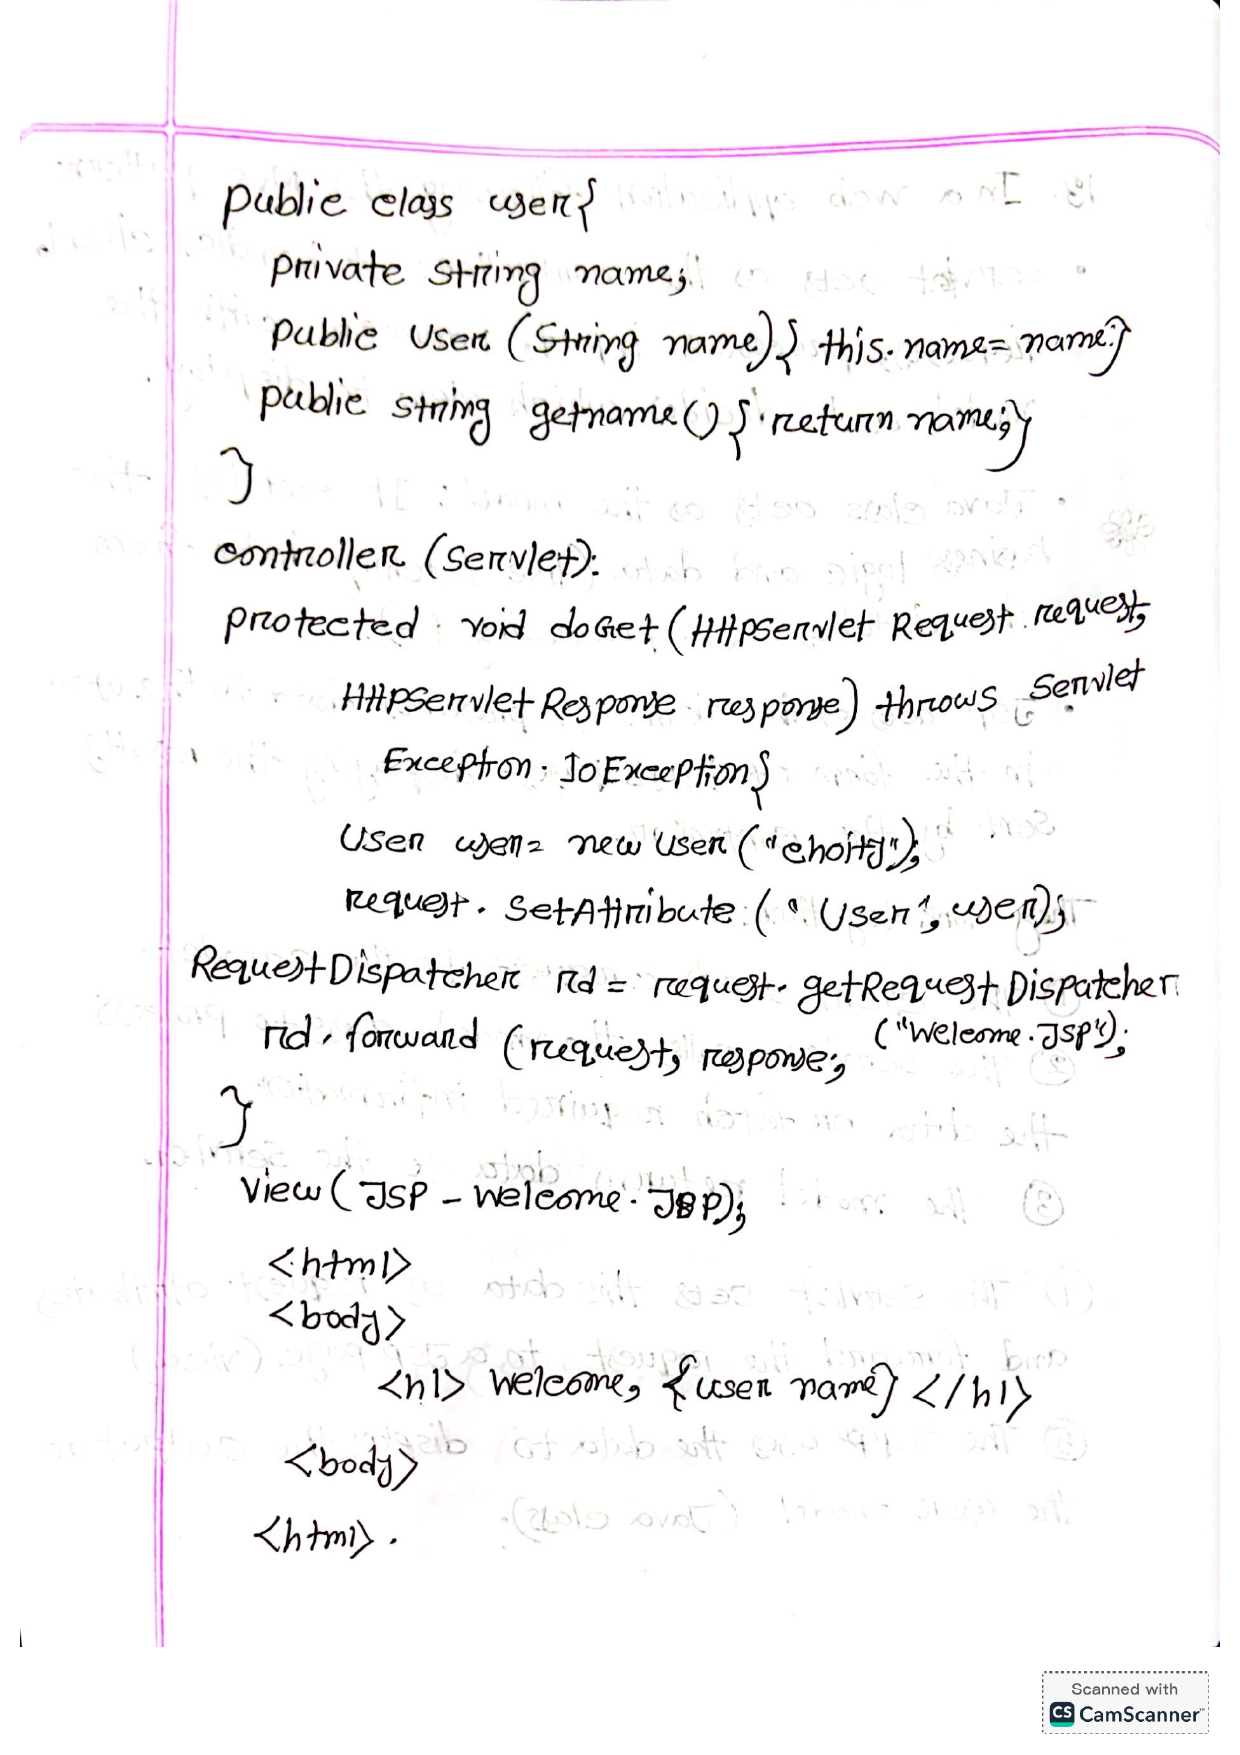 public class user{
private string name;
public User (String name){ this.name= name;}
public string getname() { return name;}
}
controller (servlet):
protected void doGet (HttpServlet Request request,
HttpServlet Response response) throws Servlet
Exception. IoException{
User user= new User ("choity");
request. SetAttribute ("User", user);
RequestDispatcher rd = request. getRequest Dispatcher
("Welcome.JSP");
rd. forward (request, response;
}
View (JSP - Welcome.JSP);
<html>
<body>
<h1> Welcome, {user name} </h1>
<body>
<html>.
Scanned with
CS CamScanner